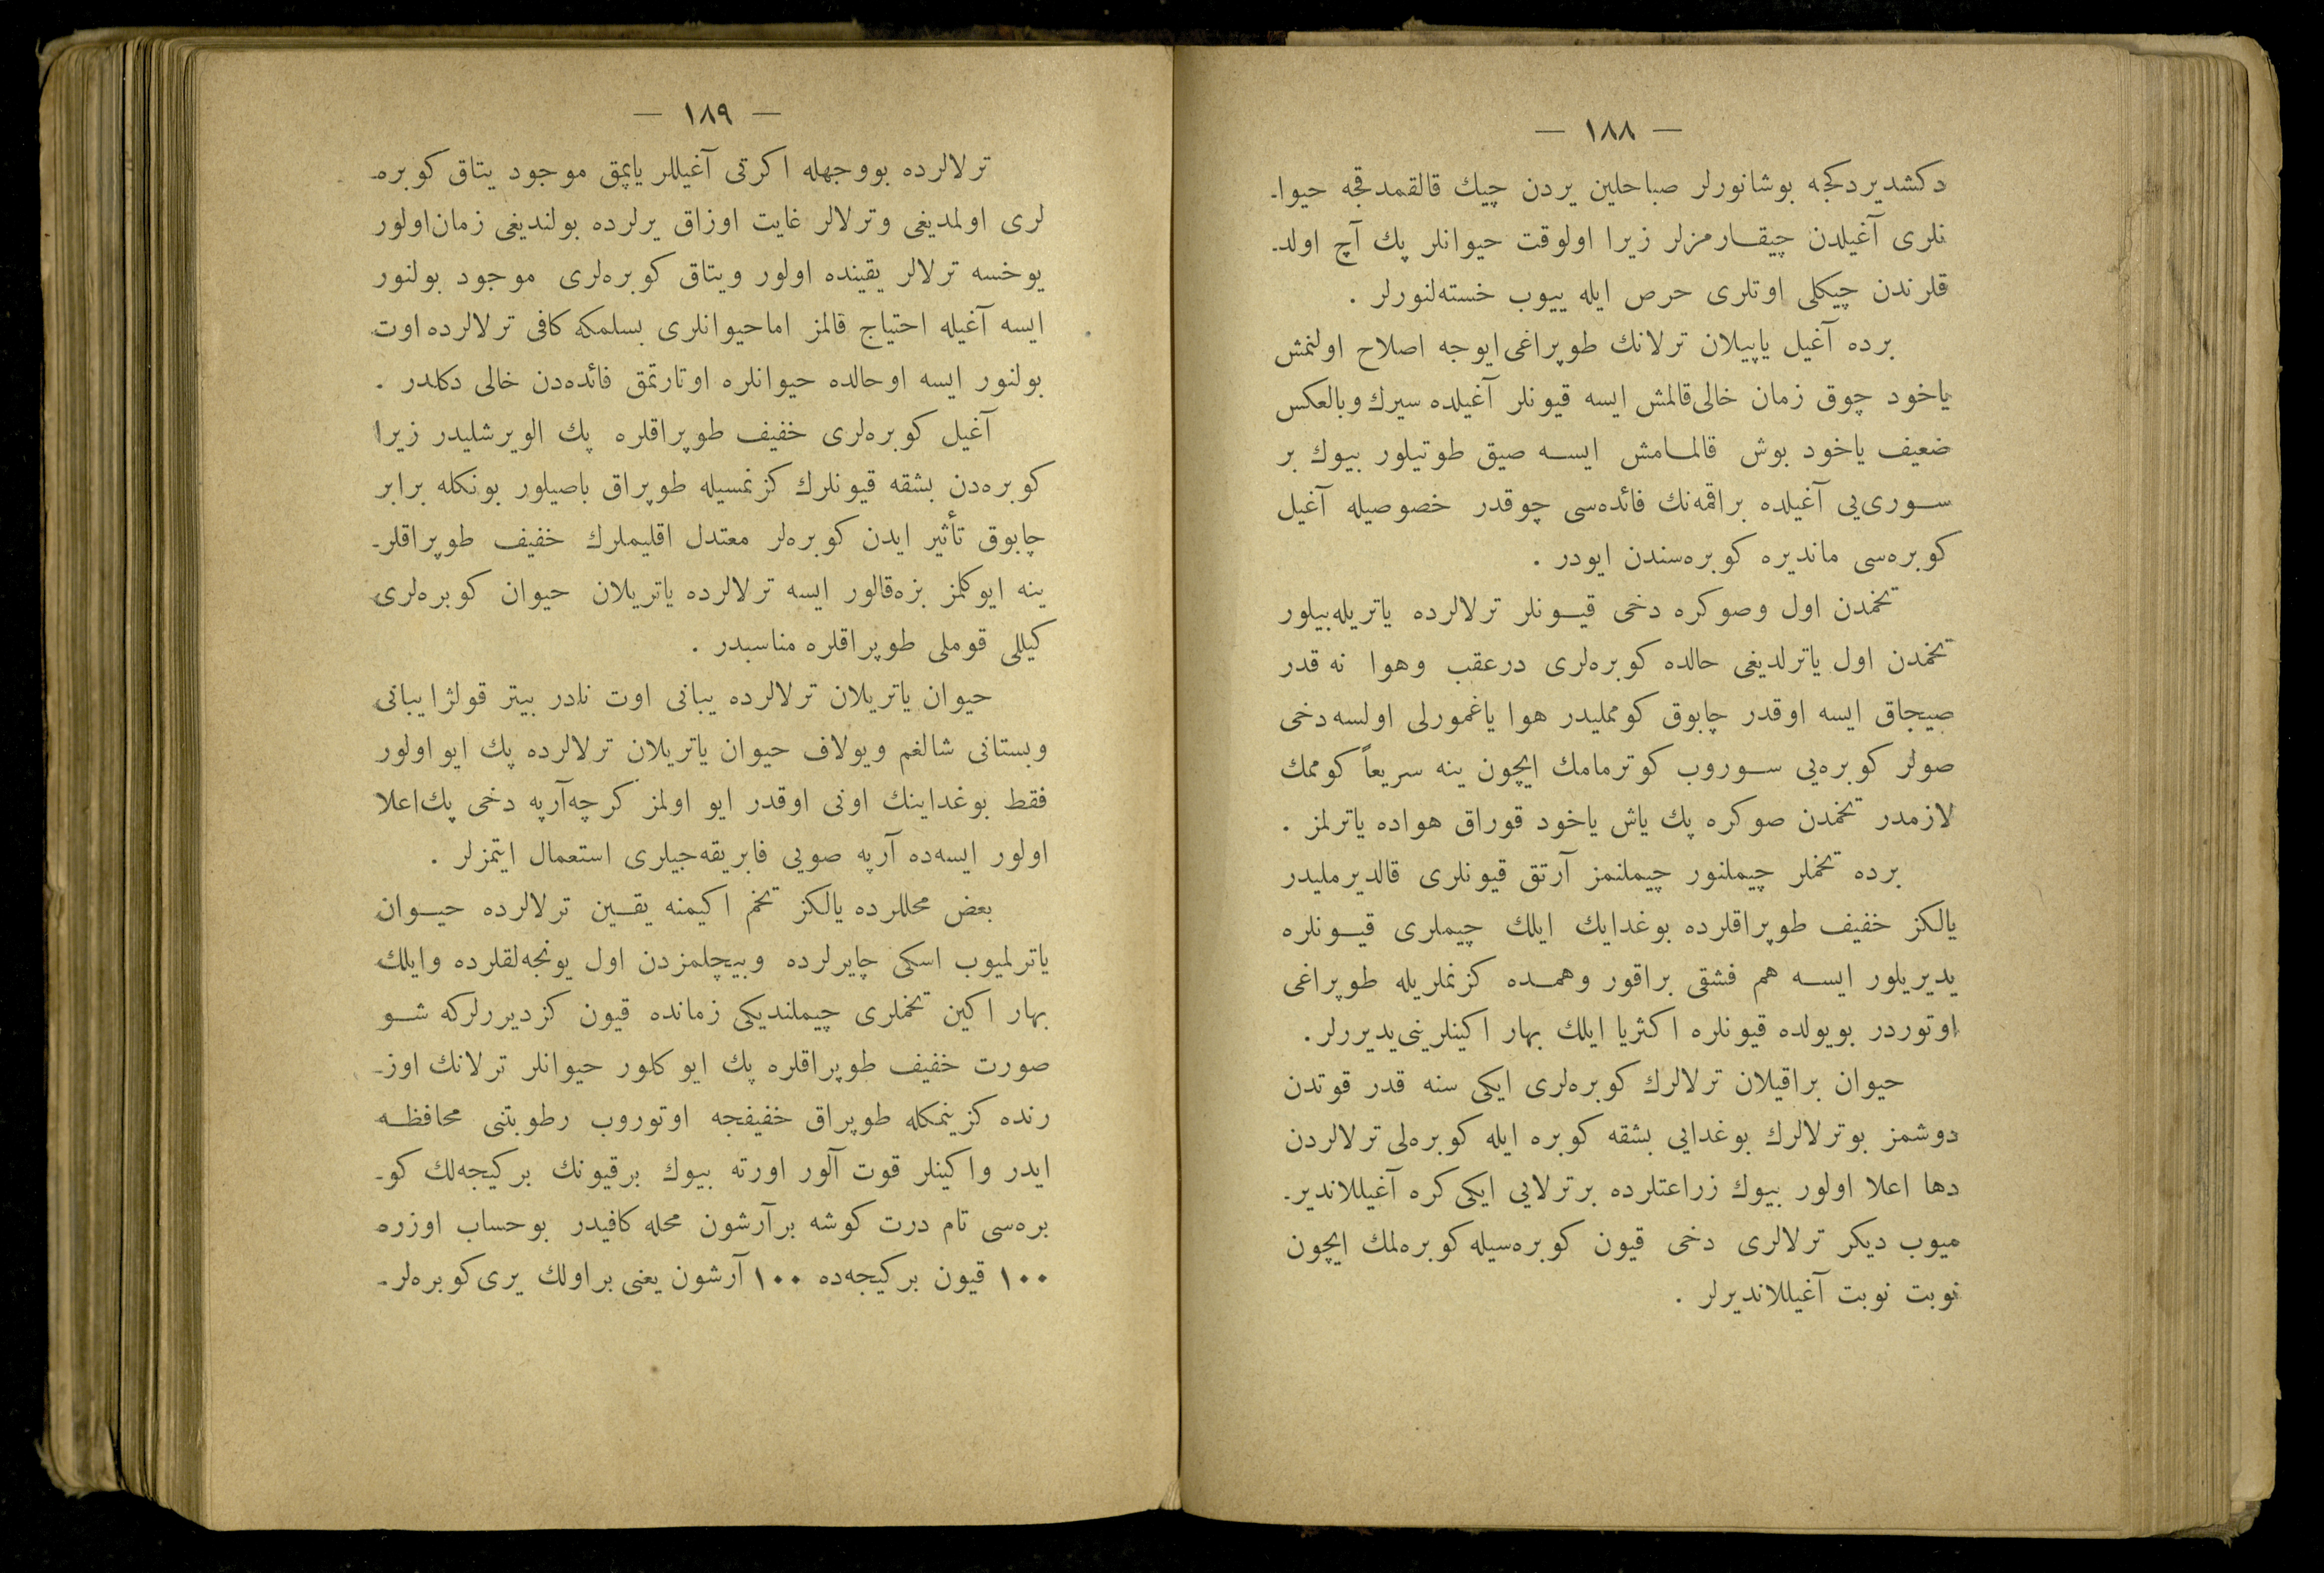 — ١٨٨ —
دكشديردكجه بوشانورلر صباحلين يردن چيك قالقمدقجه حيوا-
نلرى آغيلدن چيقارمزلر زيرا اولوقت حيوانلر پك آچ اولد-
قلرندن چيكلى اوتلرى حرص ايله ييوب خسته‌لنورلر .
برده آغيل ياپيلان ترلانك طوپراغى ايوجه اصلاح اولنمش
ياخود چوق زمان خالى قالمش ايسه قيونلر آغيلده سيرك وبالعكس
ضعيف ياخود بوش قالمامش ايسه صيق طوتيلور بيوك بر
سورى‌يى آغيلده براقمه‌نك فائده‌سى چوقدر خصوصيله آغيل
كوبره‌سى مانديره كوبره‌سندن ايودر .
تخمدن اول وصوكره دخى قيونلر ترلالرده ياتريله‌بيلور
تخمدن اول ياترلديغى حالده كوبره‌لرى درعقب وهوا نه قدر
صيجاق ايسه اوقدر چابوق كوململيدر هوا ياغمورلى اولسه دخى
صولر كوبره‌يى سوروب كوترمامك ايچون ينه سريعاً كوممك
لازمدر تخمدن صوكره پك ياش ياخود قوراق هواده ياترلمز .
برده تخملر چيملنور چيملنمز آرتق قيونلرى قالديرمليدر
يالكز خفيف طوپراقلرده بوغدايك ايلك چيملرى قيونلره
يديريلور ايسه هم فشقى براقور وهمده كزنملريله طوپراغى
اوتوردر بويولده قيونلره اكثريا ايلك بهار اكينلرينى يديررلر.
حيوان براقيلان ترلالرك كوبره‌لرى ايكى سنه قدر قوتدن
دوشمز بوترلالرك بوغدايى بشقه كوبره ايله كوبره‌لى ترلالردن
دها اعلا اولور بيوك زراعتلرده برترلايى ايكى كره آغيللانديرـ
ميوب ديكر ترلالرى دخى قيون كوبره‌سيله كوبره‌لمك ايچون
نوبت نوبت آغيللانديرلر .
— ١٨٩ —
ترلالرده بووجهله اكرتى آغيللر ياپمق موجود يتاق كوبره-
لرى اولمديغى وترلالر غايت اوزاق يرلرده بولنديغى زمان اولور
يوخسه ترلالر يقينده اولور ويتاق كوبره‌لرى موجود بولنور
ايسه آغيله احتياج قالمز اما حيوانلرى بسلمكه كافى ترلالرده اوت
بولنور ايسه اوحالده حيوانلره اوتارتمق فائده‌دن خالى دكلدر .
آغيل كوبره‌لرى خفيف طوپراقلره پك الويرشليدر زيرا
كوبره‌دن بشقه قيونلرك كزنمسيله طوپراق باصيلور بونكله برابر
چابوق تأثير ايدن كوبره‌لر معتدل اقليملرك خفيف طوپراقلر-
ينه ايوكلمز بزه‌قالور ايسه ترلالرده ياتريلان حيوان كوبره‌لرى
كيللى قوملى طوپراقلره مناسبدر .
حيوان ياتريلان ترلالرده يبانى اوت نادر بيتر قولزا يبانى
وبستانى شالغم ويولاف حيوان ياتريلان ترلالرده پك ايو اولور
فقط بوغداينك اونى اوقدر ايو اولمز كرچه آرپه دخى پك اعلا
اولور ايسه‌ده آرپه صويى فابريقه‌جيلرى استعمال ايتمزلر .
بعض محللرده يالكز تخم اكيمنه يقين ترلالرده حيوان
ياترلميوب اسكى چايرلرده وبيچلمزدن اول يونجه‌لقلرده وايلك
بهار اكين تخملرى چيملنديكى زمانده قيون كزديررلركه شو
صورت خفيف طوپراقلره پك ايو كلور حيوانلر ترلانك اوز-
رنده كزينمكله طوپراق خفيفجه اوتوروب رطوبتنى محافظه
ايدر واكينلر قوت آلور اورته بيوك برقيونك بركيجه‌لك كو-
بره‌سى تام درت كوشه برآرشون محله كافيدر بوحساب اوزره
١٠٠ قيون بركيجه‌ده ١٠٠ آرشون يعنى براولك يرى كوبره‌لر-